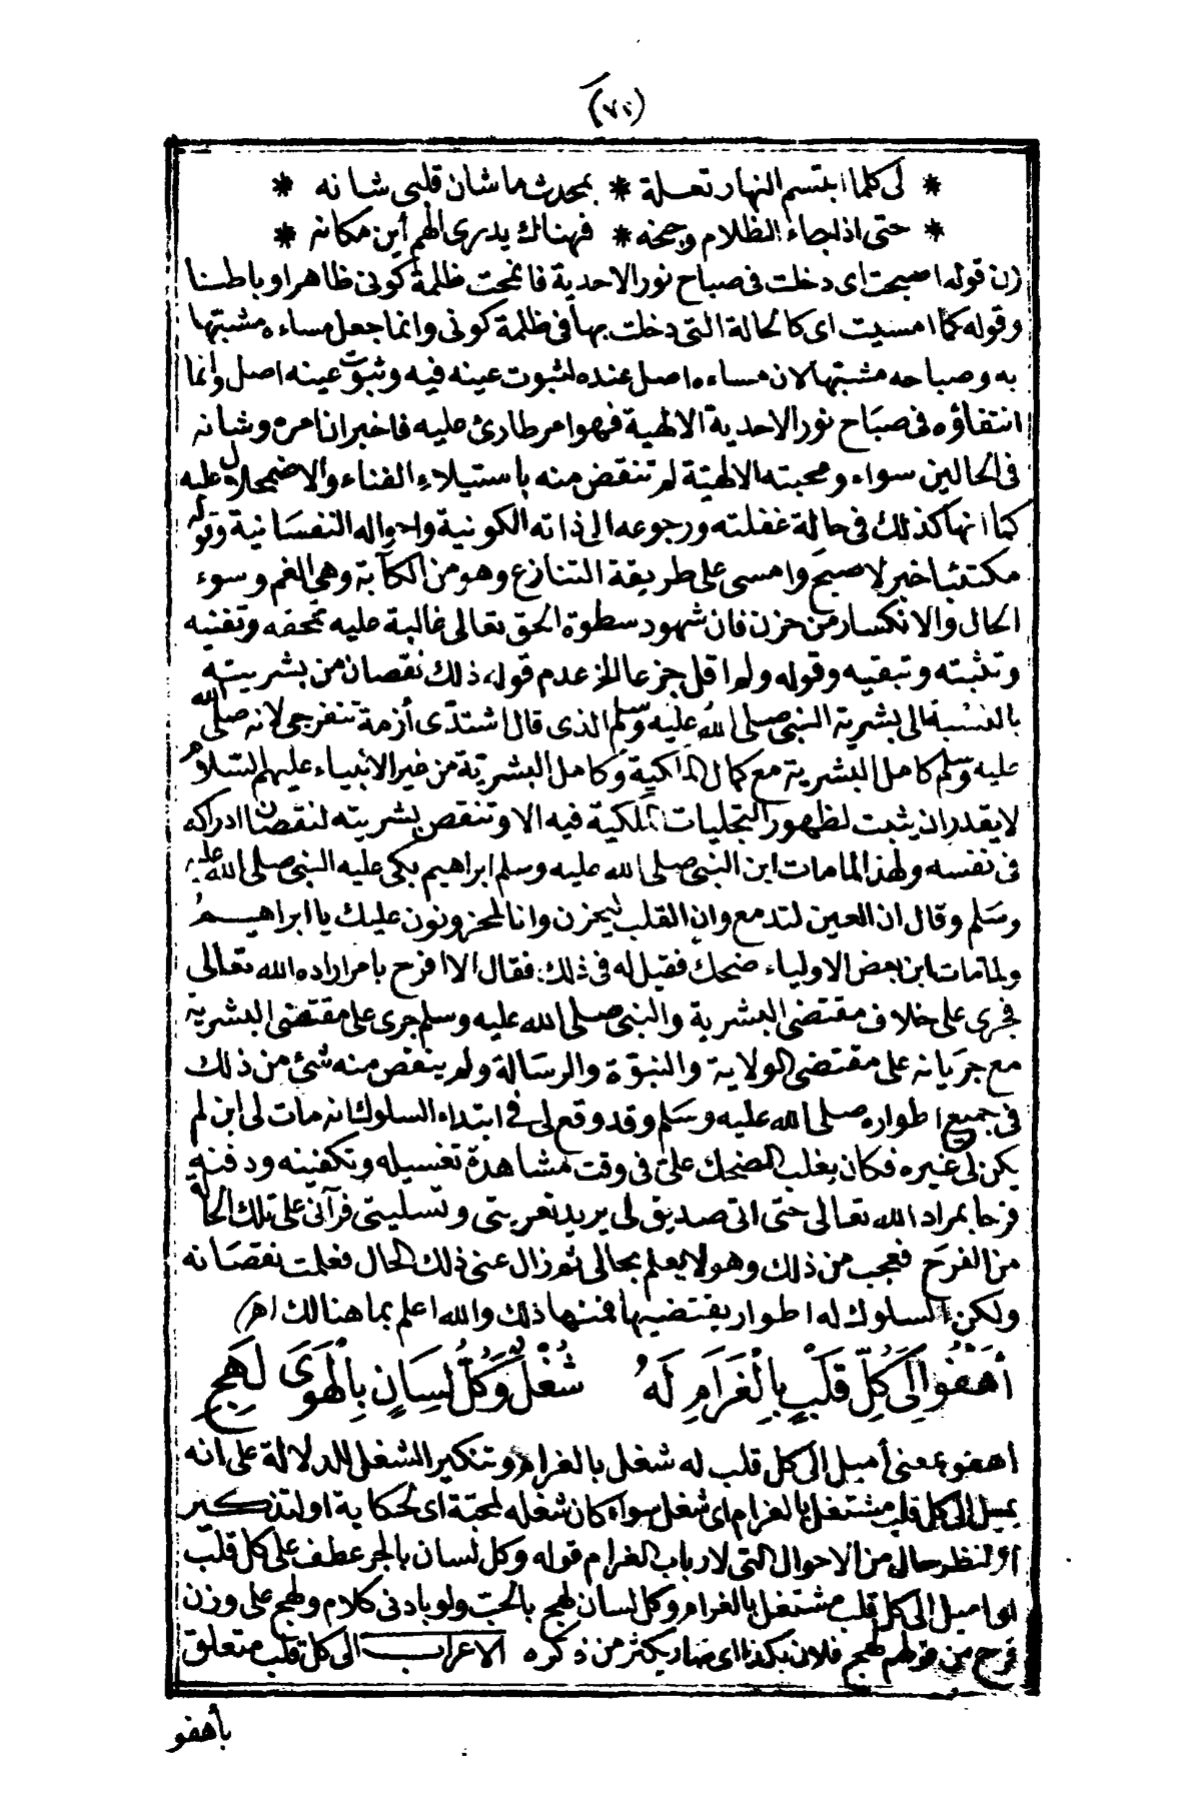 * لى كلما ابتسم النهار تعلة * بمحدث ما شان قلبى شانه *
* حتى اذا جاء الظلام وجنحه * فهناك يدرى الهم أين مكانه *
(ن قوله اصبحت اى دخلت فى صباح نور الاحدية فانمحت ظلمة كونى ظاهرا وباطنا
وقوله كما امسيت اى كالحالة التى دخلت بها فى ظلمة كونى وانما جعل مساءه مشبها
به وصباحه مشبها لان مساءه اصل عنده لثبوت عينه فيه وثبوت عينه اصل وانما
انتفاؤه فى صباح نور الاحدية الالهية فهو امر طارئ عليه فاخبر ان امره وشانه
فى الحالين سواء ومحبته الالهية لم تنقض منه باستيلاء الفناء والاضمحلال عليه
كما انها كذلك فى حالة غفلته ورجوعه الى ذاته الكونية واحواله النفسانية وقوله
مكتئبا خبر لاصبح وامسى على طريقة التنازع وهو من الكآبة وهى الغم وسوء
الحال والانكسار من حزن فان شهود سطوة الحق تعالى غالبة عليه تمحقه وتفنيه
وتثبته وتبقيه وقوله ولم اقل جزعا الخ عدم قوله ذلك نقصان من بشريته
بالنسبة الى بشرية النبى صلى الله عليه وسلم الذى قال اشتدى أزمة تنفرجى لانه صلى الله
عليه وسلم كامل البشرية مع كمال الملكية وكامل البشرية من غير الانبياء عليهم السلام
لا يقدر ان يثبت لظهور التجليات الملكية فيه الا وتنقص بشريته لنقصان ادراكه
فى نفسه ولهذا لما مات ابن النبى صلى الله عليه وسلم ابراهيم بكى عليه النبى صلى الله عليه
وسلم وقال ان العين لتدمع وان القلب ليحزن وانا لمحزونون عليك يا ابراهيم
ولما مات ابن بعض الاولياء ضحك فقيل له فى ذلك فقال الا افرح بامر اراده الله تعالى
فجرى على خلاف مقتضى البشرية والنبى صلى الله عليه وسلم جرى على مقتضى البشرية
مع جريانه على مقتضى الولاية والنبوة والرسالة ولم ينقص منه شئ من ذلك
فى جميع اطواره صلى الله عليه وسلم وقد وقع لى فى ابتداء السلوك انه مات لى ابن لم
يكن لى غيره فكان يغلب الضحك على فى وقت مشاهدة تغسيله وتكفينه ودفنه
فرحا بمراد الله تعالى حتى اتى صديق لى يريد تعزيتى وتسليتى فرآنى على تلك الحالة
من الفرح فعجب من ذلك وهو لا يعلم بحالى ثم زال عنى ذلك الحال فعلمت نقصانه
ولكن السلوك له اطوار يقتضيها فمنها ذلك والله اعلم بما هنالك اهـ)
أَهْفُو إِلَى كُلِّ قَلْبٍ بِالْغَرَامِ لَهُ شُغْلٌ وَكُلِّ لِسَانٍ بِالْهَوَى لَهِجِ
اهفو بمعنى أميل الى كل قلب له شغل بالغرام وتنكير الشغل للدلالة على انه
يميل الى كل قلب مشتغل بالغرام اى شغل سواء كان شغله لمحبة اى لحكاية او لتذكير
او لنظر حال من الاحوال التى لارباب الغرام قوله وكل لسان بالجر عطف على كل قلب
اى اميل الى كل قلب مشتغل بالغرام وكل لسان لهج بالحب ولو بادنى كلام ولهج على وزن
فرح من قولهم لهج فلان بكذا اى صار يكثر من ذكره الاعراب الى كل قلب متعلق
بأهفو